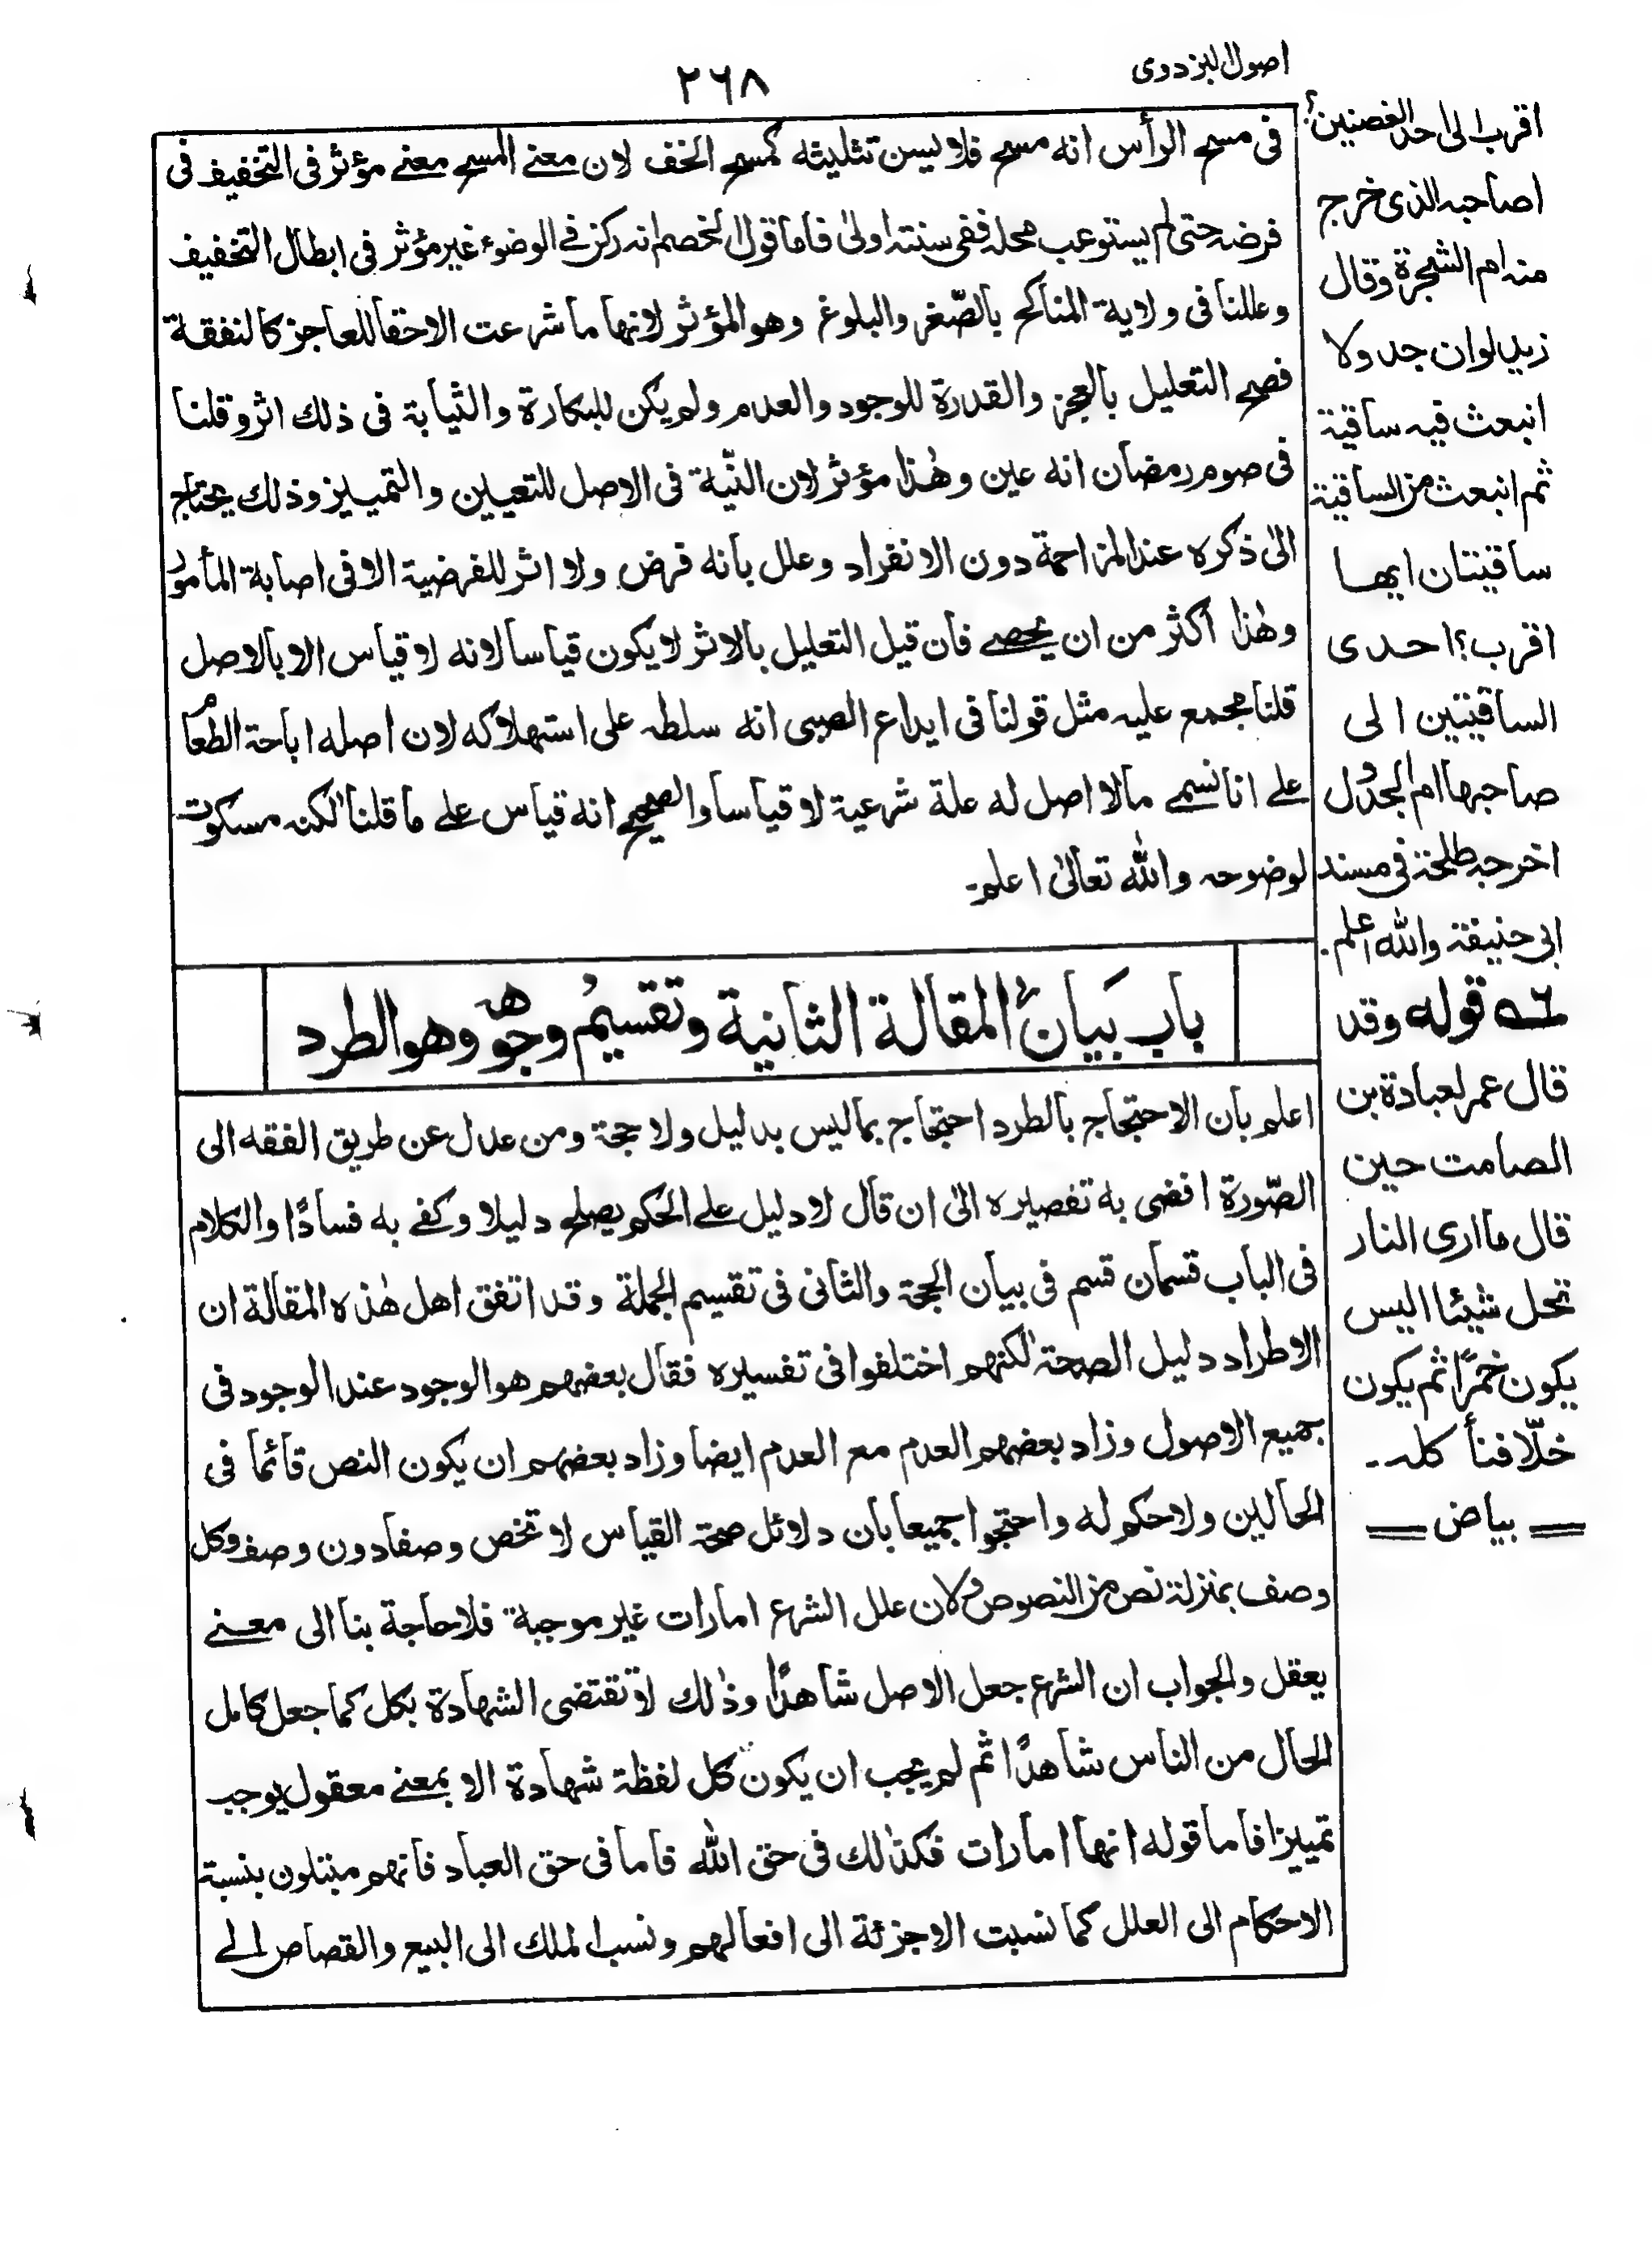 اصول البزدوی
۲۶۸
فی مسح الرأس انه مسح فلا یسن تثلیثه کمسح الخف لان معنے المسح معنے مؤثر فی التخفیف فی
فرضه حتی لم یستوعب محله ففی سنته اولیٰ فاما قول الخصم انه رکن فے الوضوء غیر مؤثر فی ابطال التخفیف
وعللنا فی ولایة المناکح بالصّغر والبلوغ وهو المؤثر لانها ما شرعت الا حقا للعاجز کالنفقة
فصح التعلیل بالعجز والقدرة للوجود والعدم ولم یکن للبکارة والثیابة فی ذلك اثر وقلنا
فی صوم رمضان انه عین وهٰذا مؤثر لان النّیة فی الاصل للتعیین والتمییز وذلك یحتاج
الیٰ ذکره عند المزاحمة دون الانفراد وعلل بانه فرض ولا اثر للفرضیة الا فی اصابة المأمور
وهٰذا اکثر من ان یحصے فان قیل التعلیل بالاثر لا یکون قیاسا لانه لا قیاس الا بالاصل
قلنا مجمع علیه مثل قولنا فی ایداع الصبی انه سلطه علی استهلاکه لان اصله اباحة الطعام
علے انا نسمی مالا اصل له علة شرعیة لا قیاسا والصحیح انه قیاس علے ما قلنا لٰکنه مسکوت
لوضوحه والله تعالیٰ اعلم۔
باب بیان المقالة الثانیة وتقسیم وجوهه وهو الطرد
اعلم بان الاحتجاج بالطرد احتجاج بمالیس بدلیل ولا حجة ومن عدل عن طریق الفقه الی
الصّورة افضی به تقصیره الیٰ ان قال لا دلیل علے الحکم یصلح دلیلا وکفے به فسادًا والکلام
فی الباب قسمان قسم فی بیان الحجة والثانی فی تقسیم الجملة وقد اتفق اهل هٰذه المقالة ان
الاطراد دلیل الصحة لٰکنهم اختلفوا فی تفسیره فقال بعضهم هو الوجود عند الوجود فی
جمیع الاصول وزاد بعضهم العدم مع العدم ایضا وزاد بعضهم ان یکون النص قائما فی
الحالین ولا حکم له واحتجوا جمیعا بان دلائل صحة القیاس لا تخص وصفا دون وصف وکل
وصف بمنزلة نص من النصوص ولان علل الشرع امارات غیر موجبة فلا حاجة بنا الی معنے
یعقل والجواب ان الشرع جعل الاصل شاهدًا وذٰلك لا تقتضی الشهادة بکل کما جعل کامل
الحال من الناس شاهدًا ثم لم یجب ان یکون کل لفظة شهادة الا بمعنے معقول یوجب
تمییزا فاما قوله انها امارات فکذٰلك فی حق الله فاما فی حق العباد فانهم مبتلون بنسبة
الاحکام الی العلل کما نسبت الاجزئة الی افعالهم ونسب الملك الی البیع والقصاص الے
اقرب الی احد الغصنین؟
اصاحبه الذی خرج
منه ام الشجرة وقال
زید لو ان جدولا
انبعث فیه ساقیة
ثم انبعث من الساقیة
ساقیتان ایهما
اقرب؟ احدی
الساقیتین الی
صاحبها ام الجدول
اخرجه طلحة فی مسند
ابی حنیفة والله اعلم.
۵۶ قوله وقد
قال عمر لعبادة بن
الصامت حین
قال ما اری النار
تحل شیئا الیس
یکون خمرًا ثم یکون
خلّا فنأکله۔
بیاض